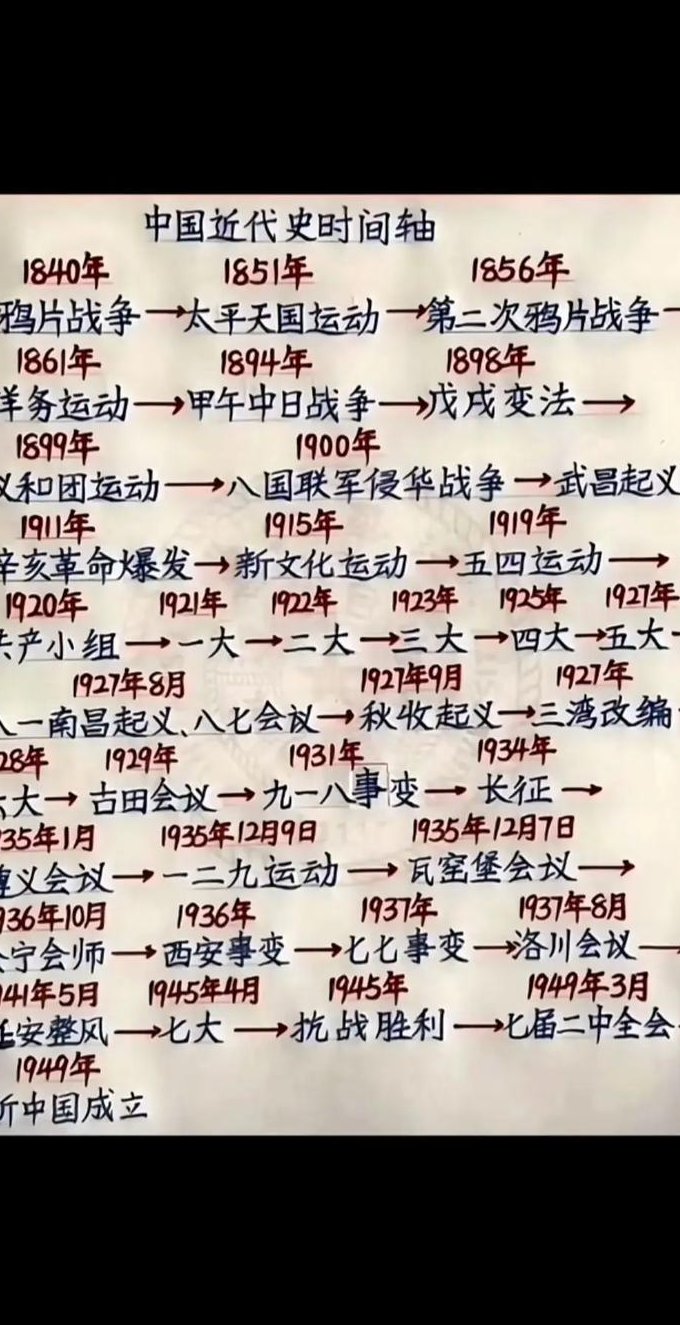 中国近代史时间轴
1840年 1851年 1856年
鸦片战争→太平天国运动→第二次鸦片战争→
1861年 1894年 1898年
洋务运动→甲午中日战争→戊戌变法→
1899年 1900年
义和团运动→八国联军侵华战争→武昌起义
1911年 1915年 1919年
辛亥革命爆发→新文化运动→五四运动→
1920年 1921年 1922年 1923年 1925年 1927年
共产小组→一大→二大→三大→四大→五大→
1927年8月 1927年9月 1927年
八一南昌起义、八七会议→秋收起义→三湾改编
28年 1929年 1931年 1934年
六大→古田会议→九一八事变→长征→
935年1月 1935年12月9日 1935年12月7日
遵义会议→一二九运动→瓦窑堡会议→
936年10月 1936年 1937年 1937年8月
会宁会师→西安事变→七七事变→洛川会议→
941年5月 1945年4月 1945年 1949年3月
延安整风→七大→抗战胜利→七届二中全会
1949年
新中国成立